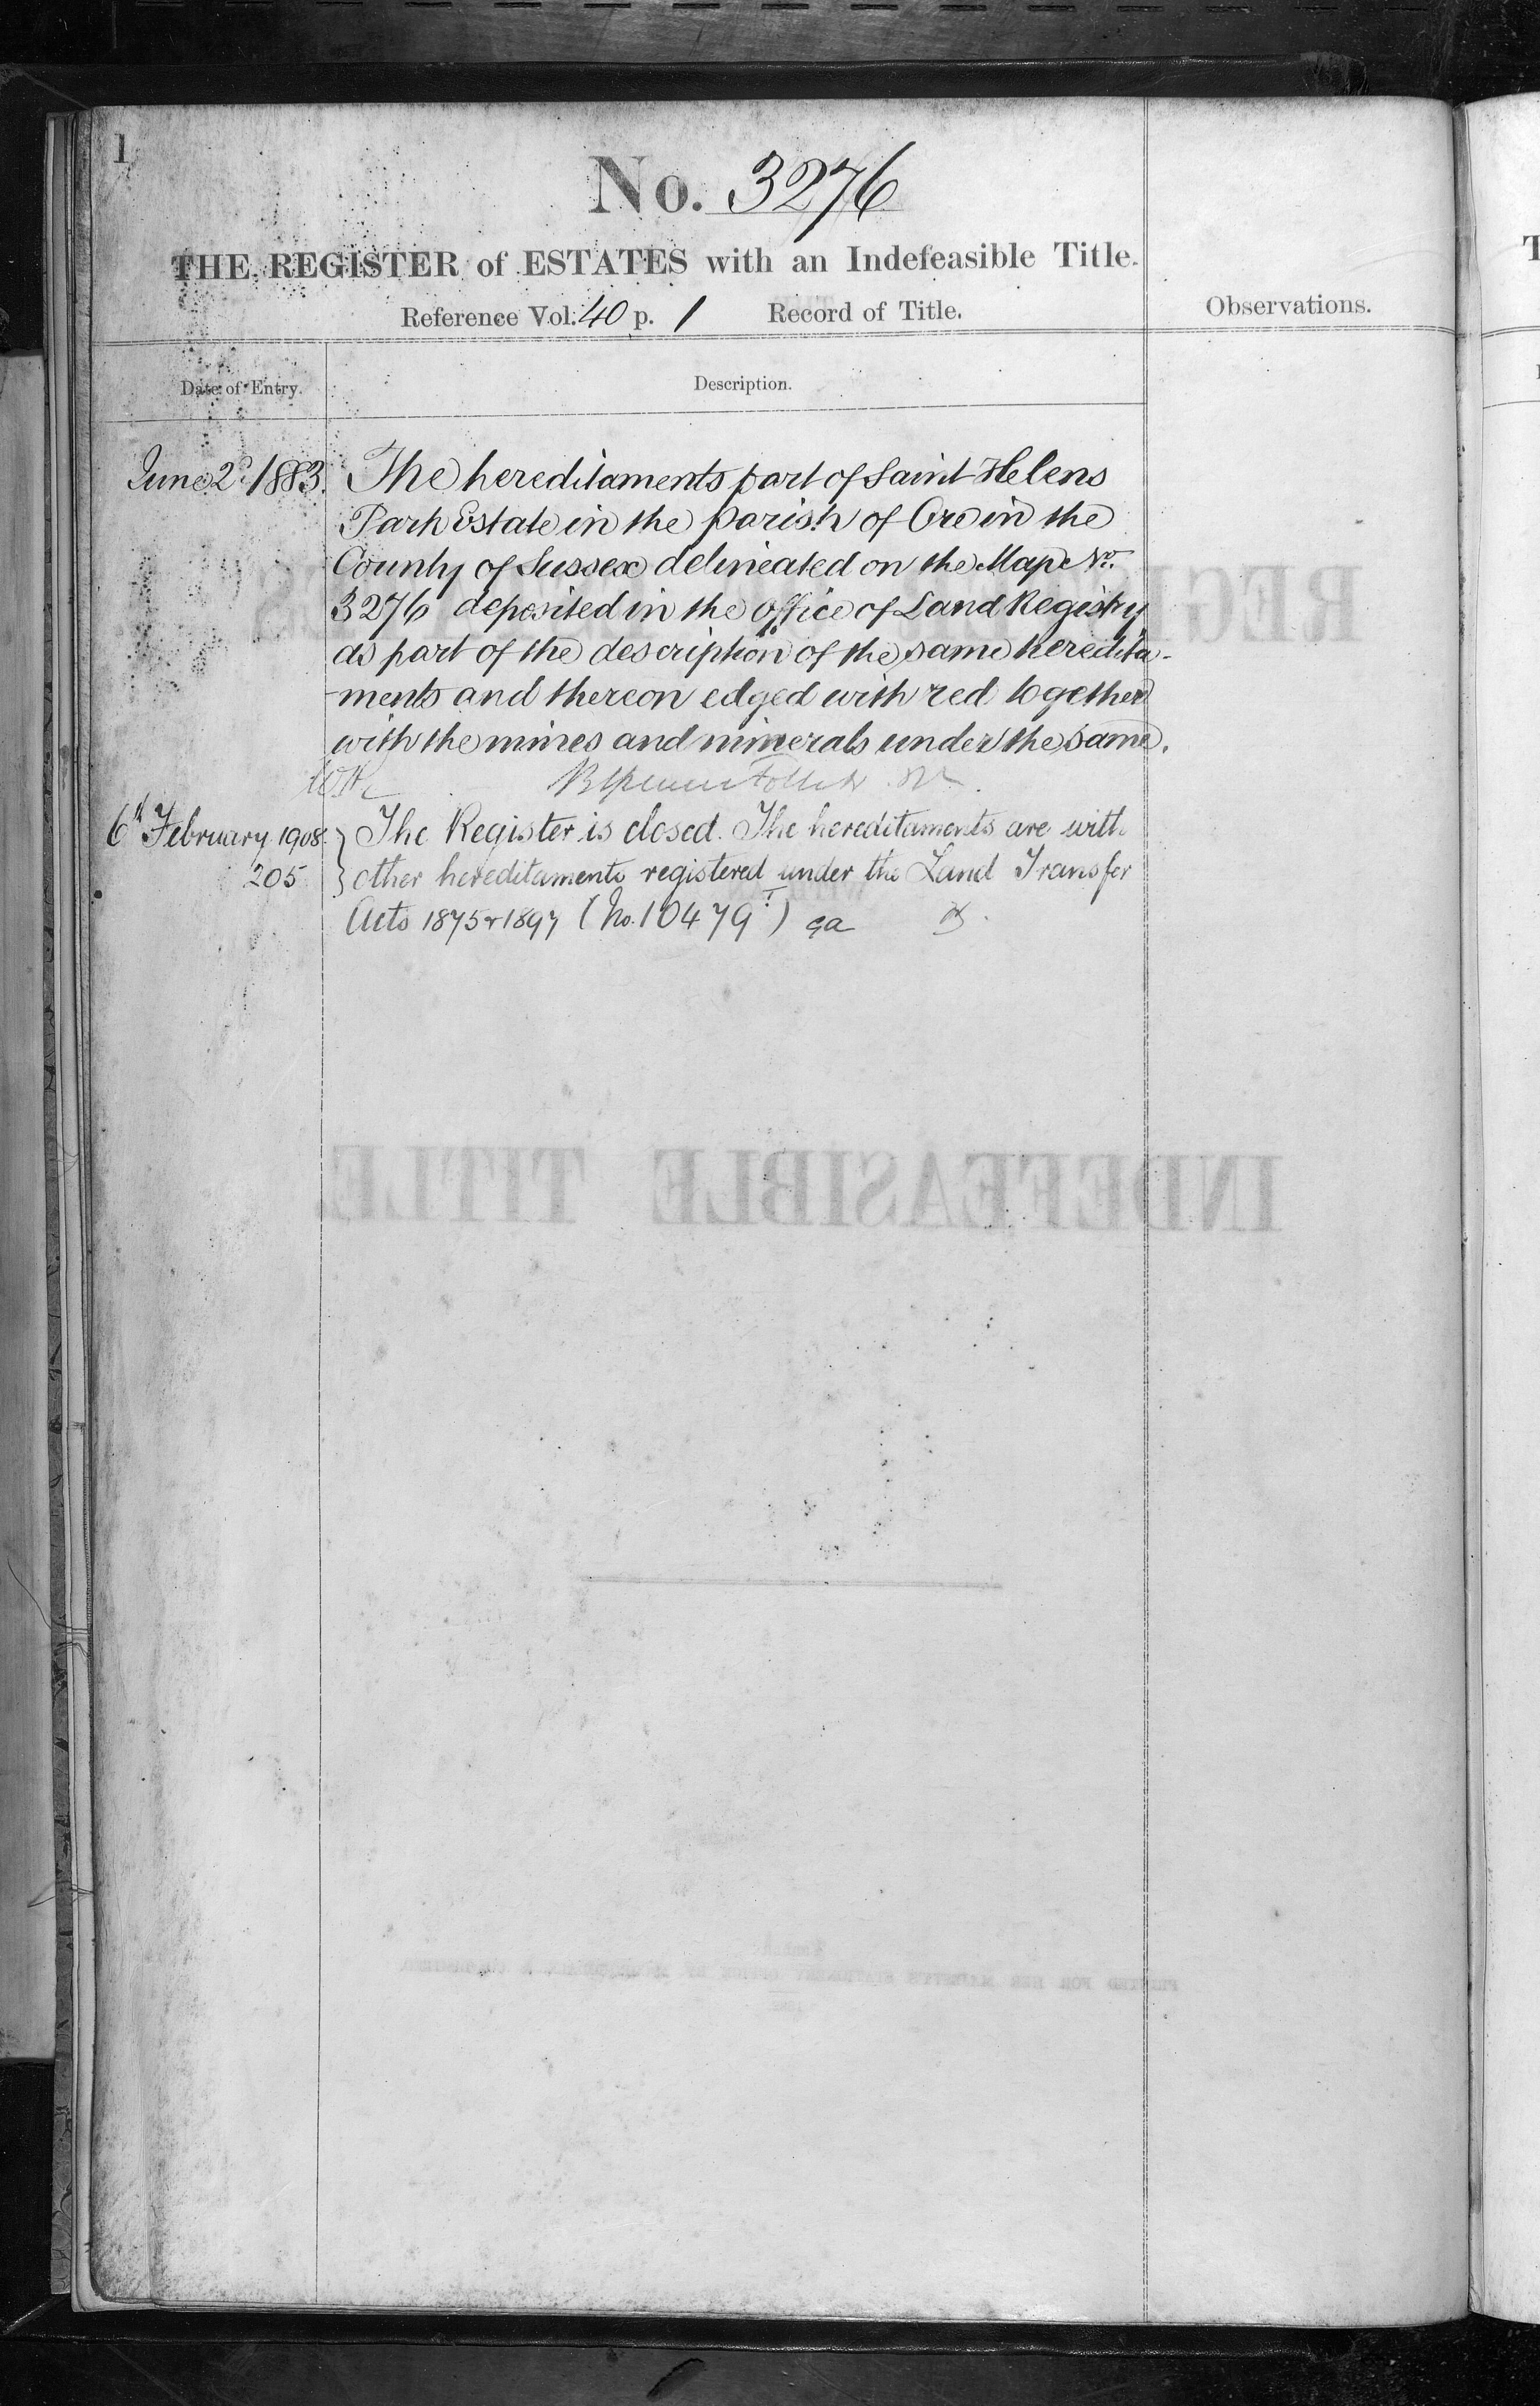 1
No. 3276
THE REGISTER of ESTATES with an Indefeasible Title.
Reference Vol. 40 p. 1 Record of Title.
Observations.
Date of Entry.
Description.
June 2d 1883. The hereditaments part of Saint Helens
Park Estate in the parish of Ore in the
County of Sussex delineated on the Map No.
3276 deposited in the office of Land Registry
as part of the description of the same heredita-
-ments and thereon edged with red together
with the mines and minerals under the same.
6th February 1908. } The Register is closed. The hereditaments are with
205 } other hereditaments registered under the Land Transfer
Acts 1875 & 1897 (No. 10479)
INDEFEASIBLE TITLE